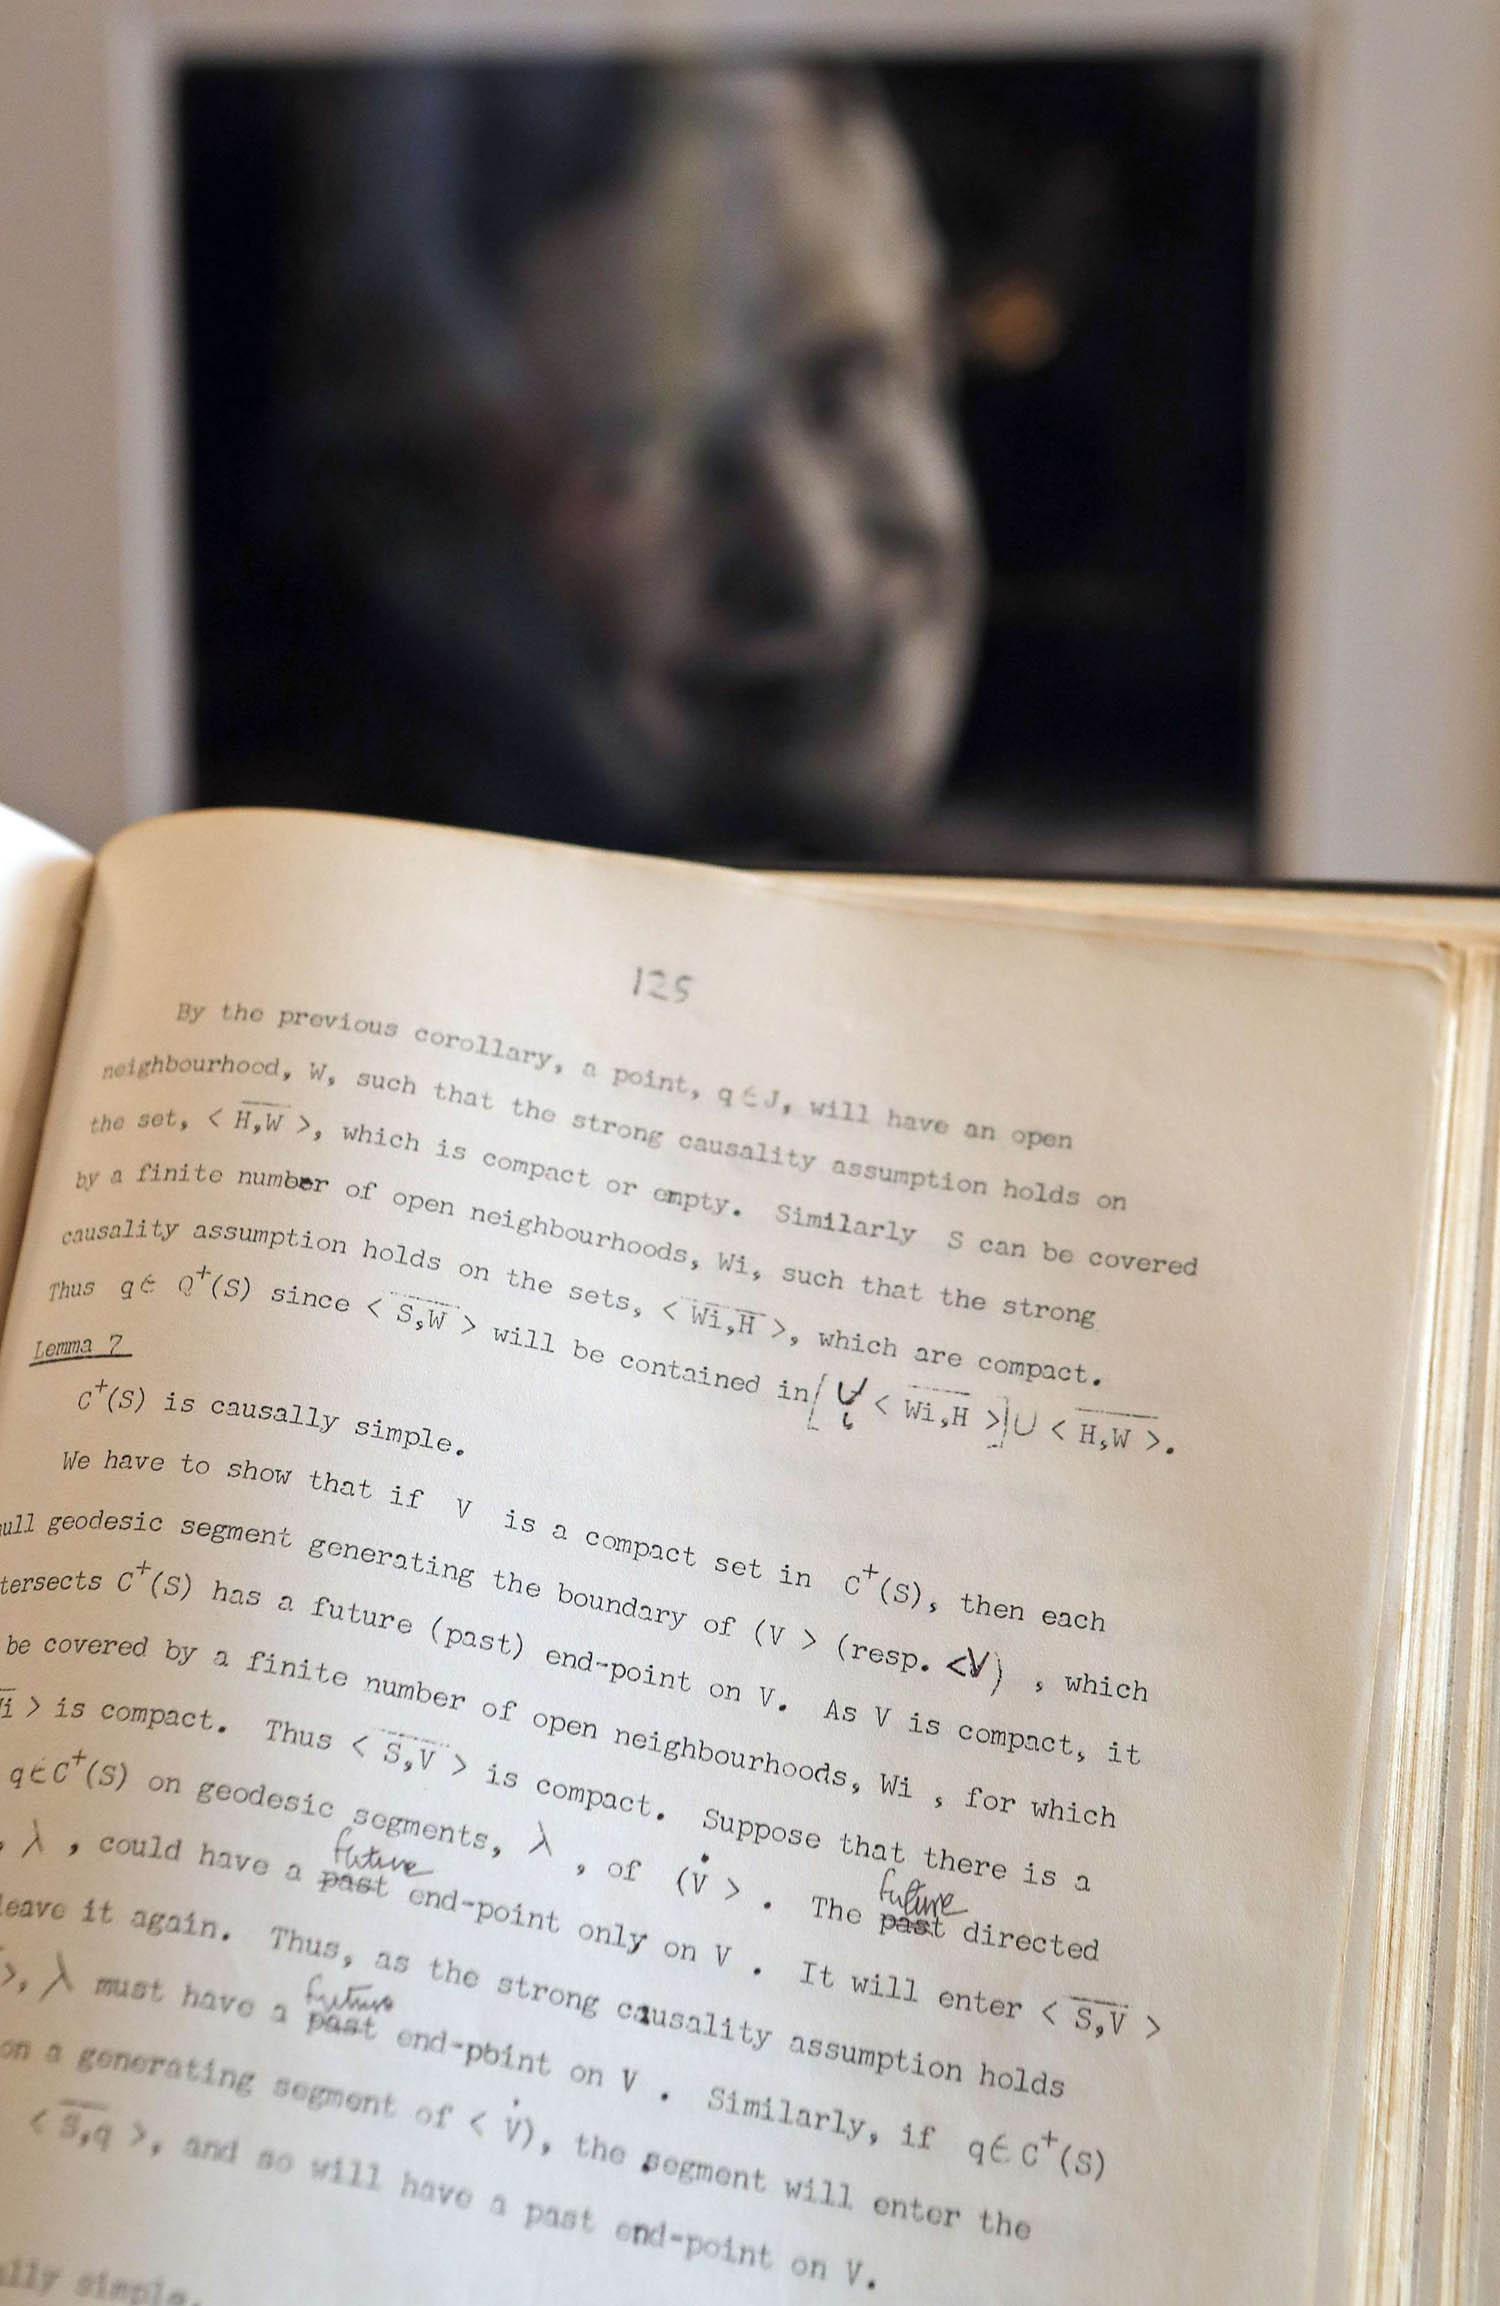 125
By the previous corollary, a point, q ∈ J, will have an open
neighbourhood, W, such that the strong causality assumption holds on
the set, < H,W >, which is compact or empty. Similarly S can be covered
by a finite number of open neighbourhoods, Wi, such that the strong
causality assumption holds on the sets, < Wi,H >, which are compact.
Thus q ∈ Q⁺(S) since < S,W > will be contained in [ ∪ i < Wi,H >] ∪ < H,W >.
Lemma 7
C⁺(S) is causally simple.
We have to show that if V is a compact set in C⁺(S), then each
null geodesic segment generating the boundary of (V > (resp. <V) , which
tersects C⁺(S) has a future (past) end-point on V. As V is compact, it
be covered by a finite number of open neighbourhoods, Wi , for which
i > is compact. Thus < S,V > is compact. Suppose that there is a
q ∈ C⁺(S) on geodesic segments, λ , of (V̇ > . The past future directed
, λ , could have a past future end-point only on V . It will enter < S,V >
leave it again. Thus, as the strong causality assumption holds
>, λ must have a past future end-point on V . Similarly, if q ∈ C⁺(S)
on a generating segment of < V̇), the segment will enter the
< S,q >, and so will have a past end-point on V.
ally simple.